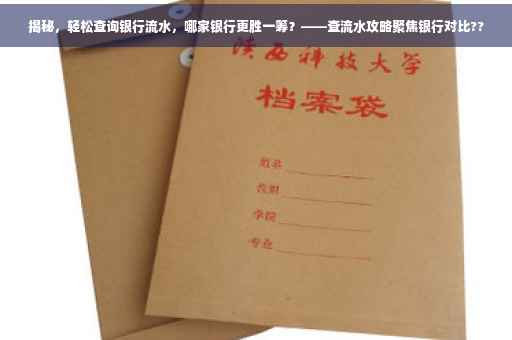 揭秘，轻松查询银行流水，哪家银行更胜一筹？——查流水攻略聚焦银行对比??
陕西科技大学
档案袋
姓名
学院
专业